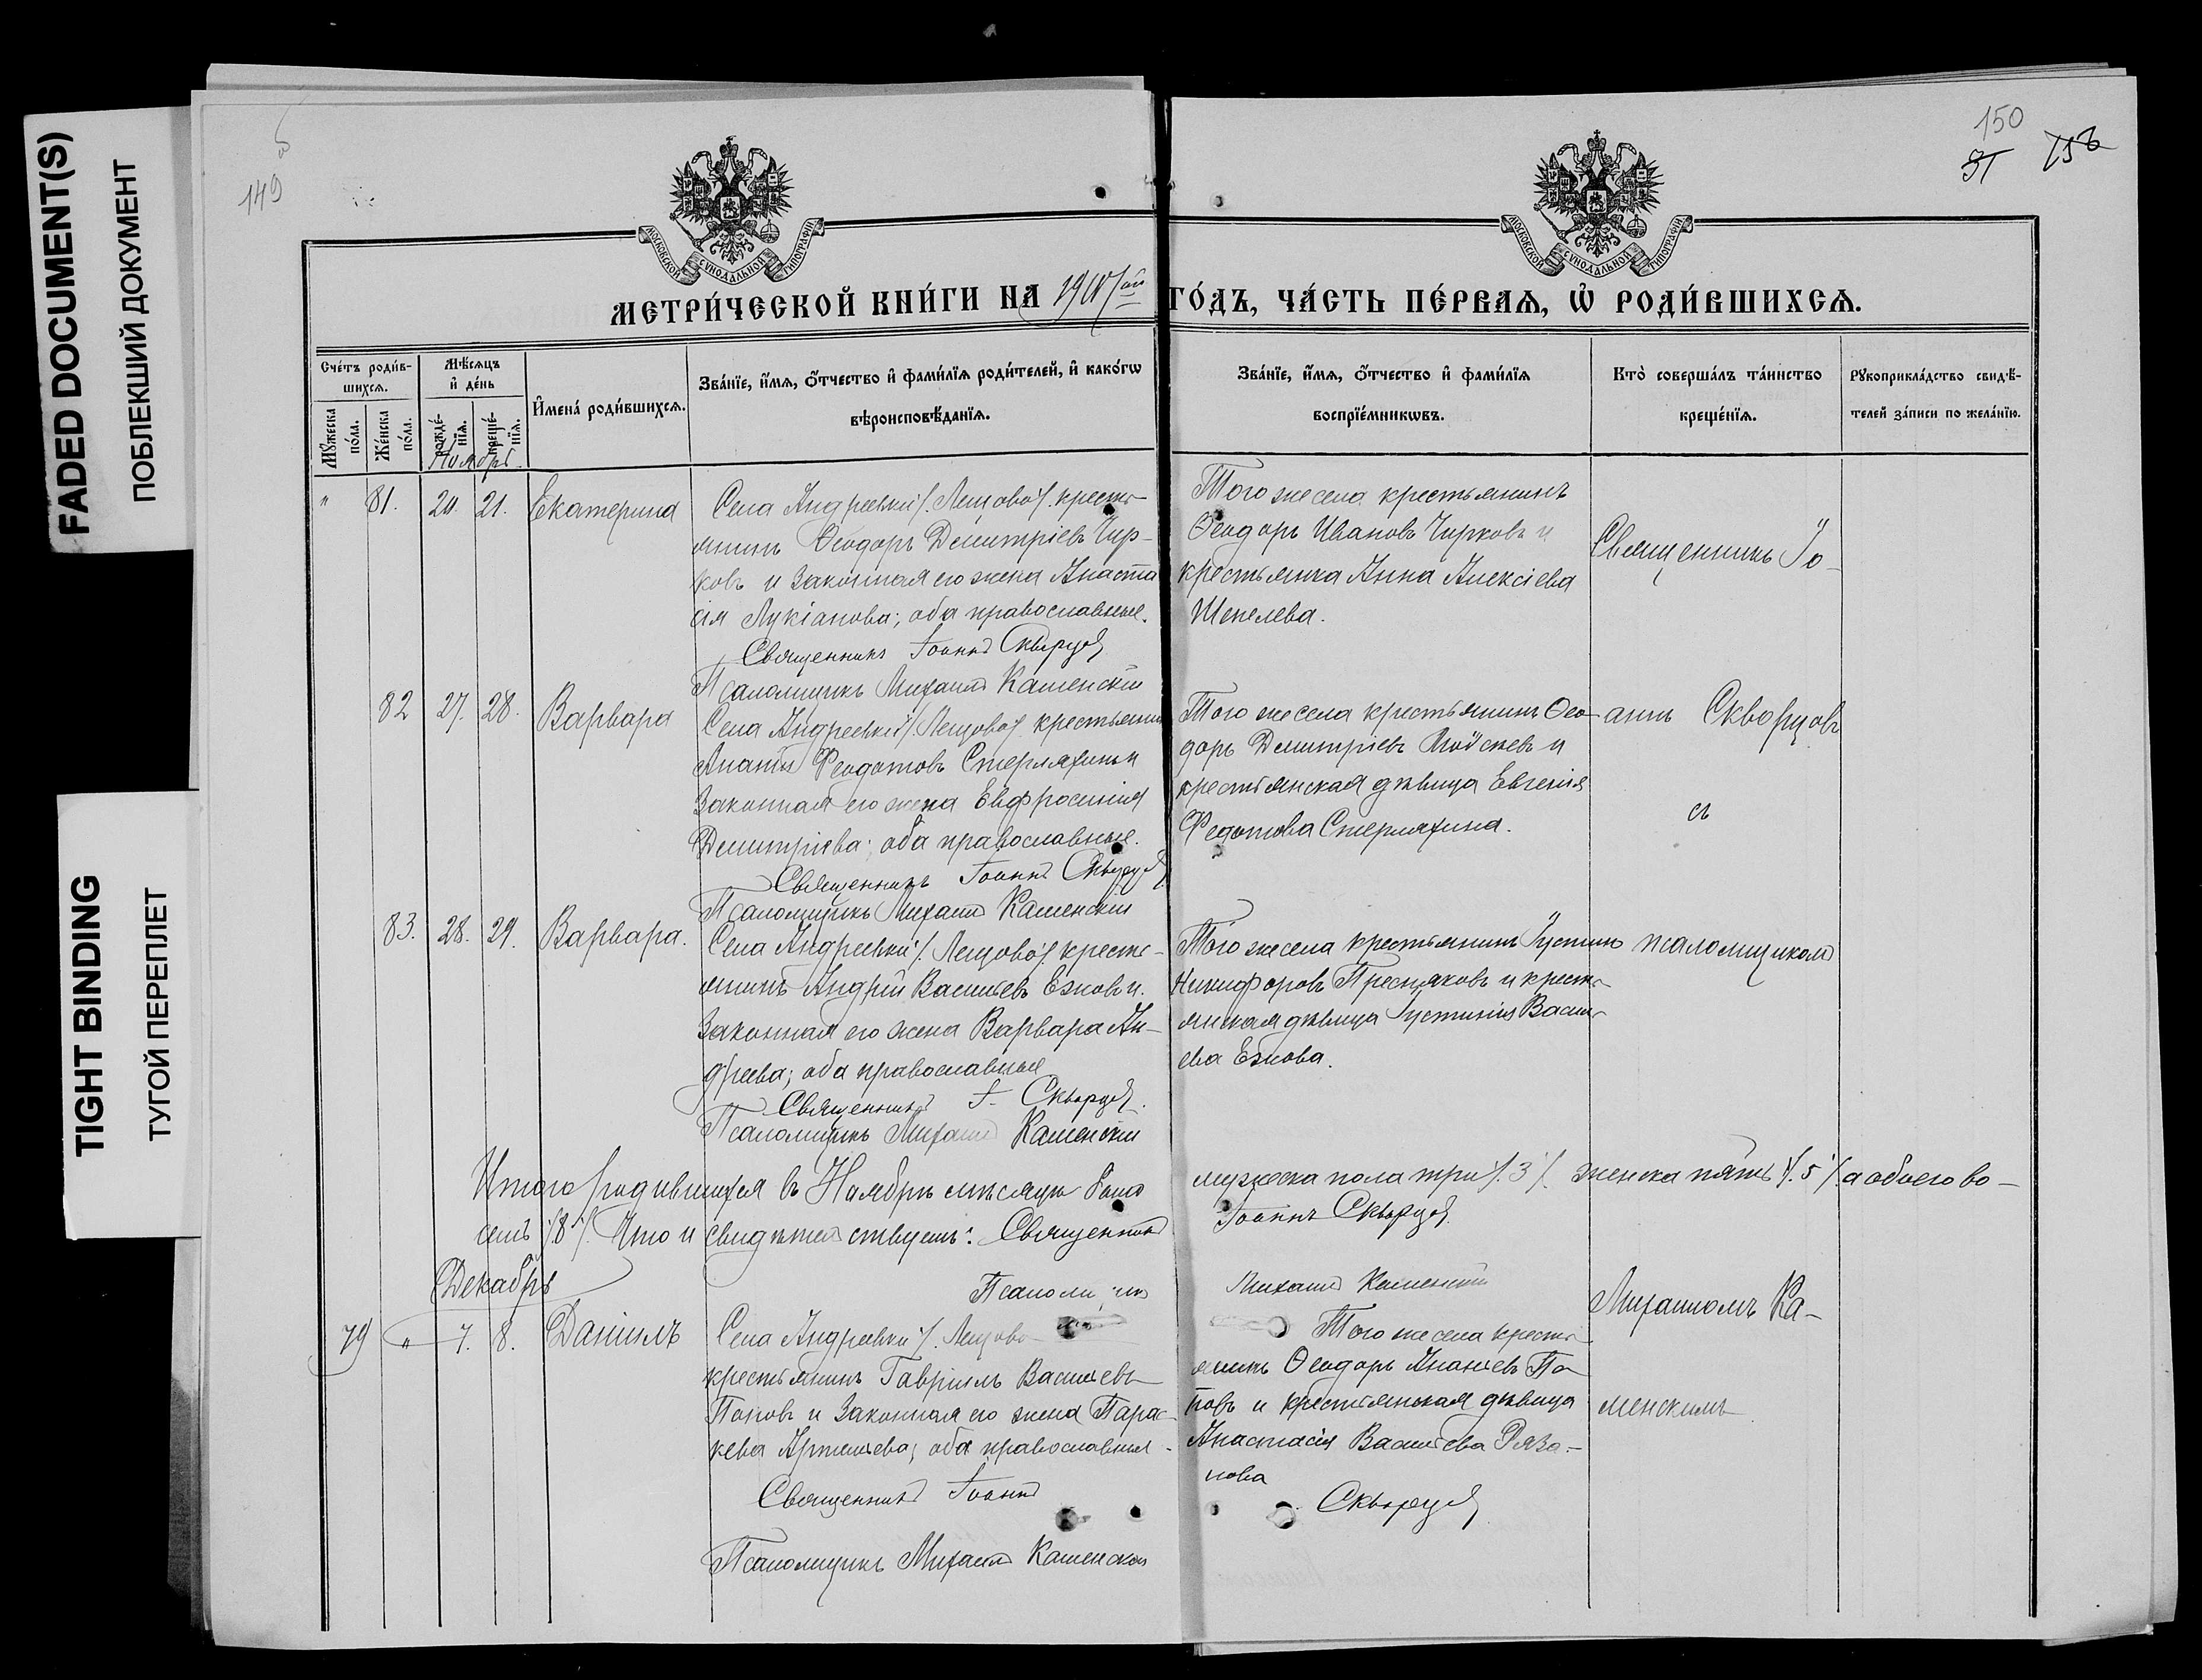 FADED DOCUMENT(S)
ПОБЛЕКШИЙ ДОКУМЕНТ
TIGHT BINDING
ТУГОЙ ПЕРЕПЛЕТ
149
150
31
МОСКОВСКОЙ СѴНОДАЛЬНОЙ ТИПОГРАФІИ
МОСКОВСКОЙ СѴНОДАЛЬНОЙ ТИПОГРАФІИ
МЕТРИ́ЧЕСКОЙ КНИ́ГИ НА
ГО́ДЪ, ЧА́СТЬ ПЕ́РВАѦ, Ѡ҆ РОДИ́ВШИХСѦ.
Сче́тъ роди́в-
шихсѧ.
Мꙋ́жеска
по́ла.
Же́нска
по́ла.
Мѣ́сѧцъ
и҆ де́нь
рожде́-
нїѧ.
креще́-
нїѧ.
И҆мена̀ роди́вшихсѧ.
Зва́нїе, и҆́мѧ, ѻ҆́тчество и҆ фами́лїѧ роди́телей, и҆ како́гѡ
вѣроисповѣ́данїѧ.
Зва́нїе, и҆́мѧ, ѻ҆́тчество и҆ фами́лїѧ
воспрїе́мникѡвъ.
Кто̀ соверша́лъ та́инство
креще́нїѧ.
Рꙋкоприкла́дство свидѣ́-
телей за́писи по жела́нїю.
Ноябрь
" 81. 20. 21. Екатерина
Села Андреевки /. Лещово /. кресть-
янинъ Ѳеодоръ Димитріевъ Чир-
ковъ и законная его жена Анаста
сія Лукіанова; оба православные.
Священникъ Іоаннъ Скворцовъ
Псаломщикъ Михаилъ Каменскій
Того же села крестьянинъ
Ѳеодоръ Ивановъ Чирковъ и
крестьянка Анна Алексіева
Шепелева.
Священникъ Іо-
82 27. 28. Варвара
Села Андреевки /. Лещово /. крестьянинъ
Ѳеодотовъ Стерляхинъ и
законная его жена Евфросинія
Димитріева; оба православные.
Священникъ Іоаннъ Скворцовъ
Псаломщикъ Михаилъ Каменскій
Того же села крестьянинъ Ѳео-
доръ Димитріевъ и
крестьянская дѣвица Евгенія
Федотова Стерляхина.
аннъ Скворцовъ
съ
83. 28. 29. Варвара.
Села Андреевки /. Лещово /. кресть-
янинъ Андрей Васильевъ Езновъ и
законная его жена Варвара Ан-
дреева; оба православные
Священникъ І. Скворцовъ.
Псаломщикъ Михаилъ Каменскій
Того же села крестьянинъ Іустинъ
Никифоровъ Пресняковъ и кресть-
янская дѣвица Іустинія Василь-
ева Езнова.
псаломщикомъ
Итого родившихся въ Ноябрѣ мѣсяцѣ было
мужеска пола три /. 3 /. женска пять /. 5 /. а обоего во-
семь /. 8 /. Что и свидѣтельствуемъ: Священникъ
Іоаннъ Скворцовъ.
Декабрь
Михаилъ Каменскій
79 " 7. 8. Даніилъ
Села Андреевки /. Лещово
крестьянинъ Гавріилъ Васильевъ
Поповъ и законная его жена Парас-
кева Артемьева; оба православныя.
Священникъ Іоаннъ
Псаломщикъ Михаилъ Каменскій
Того же села кресть-
янинъ Ѳеодоръ Ананьевъ По-
повъ и крестьянская дѣвица
Анастасія Васильева Ряза-
нова
Скворцовъ
Михаиломъ Ка-
менскимъ